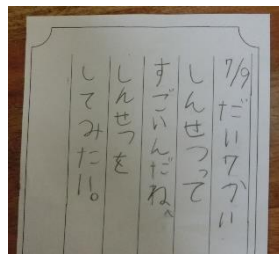 7/9 だい7かい
しんせつって
すごいんだね。
しんせつを
してみたい。